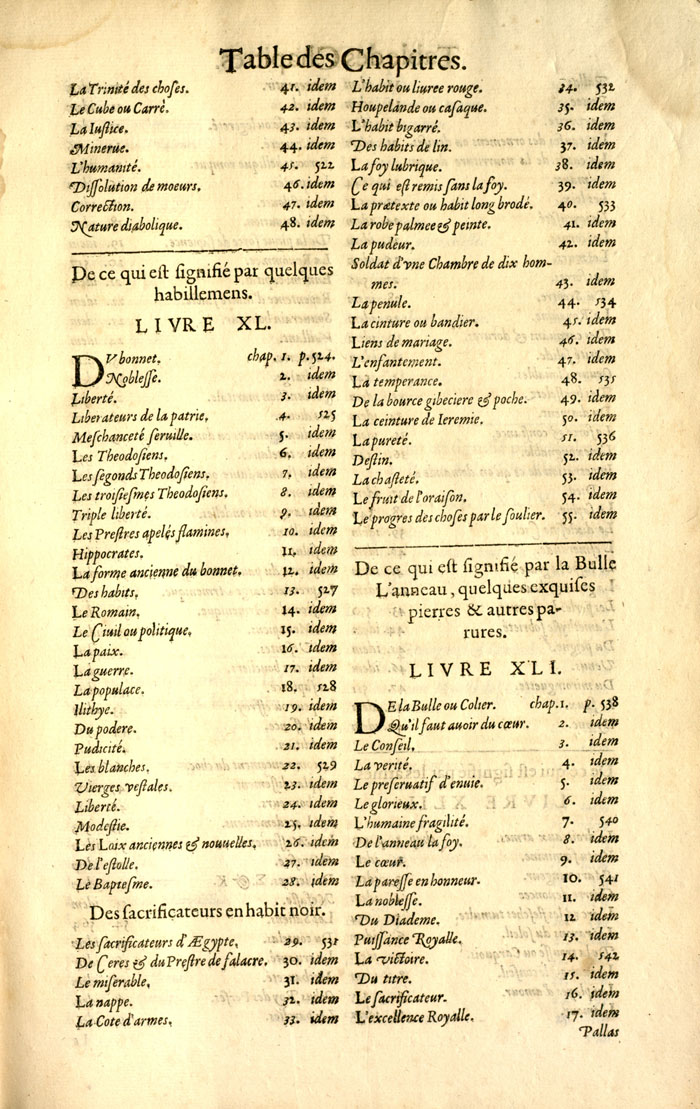 Table des Chapitres.
La Trinité des choses. 41. idem
Le Cube ou Carrè. 42. idem
La Iustice. 43. idem
Minerue. 44. idem
L'humanité. 45. 522
Dissolution de moeurs. 46. idem
Correction. 47. idem
Nature diabolique. 48. idem
De ce qui est signifié par quelques
habillemens.
LIVRE XL.
DV bonnet. chap. 1. p. 524.
Noblesse. 2. idem
Liberté. 3. idem
Liberateurs de la patrie. 4. 525
Meschanceté seruille. 5. idem
Les Theodosiens. 6. idem
Les segonds Theodosiens. 7. idem
Les troisiesmes Theodosiens. 8. idem
Triple liberté. 9. idem
Les Prestres apelés flamines. 10. idem
Hippocrates. 11. idem
La forme ancienne du bonnet. 12. idem
Des habits. 13. 527
Le Romain. 14. idem
Le Ciuil ou politique. 15. idem
La paix. 16. idem
La guerre. 17. idem
La populace. 18. 528
Ilithye. 19. idem
Du podere. 20. idem
Pudicité. 21. idem
Les blanches. 22. 529
Vierges vestales. 23. idem
Liberté. 24. idem
Modestie. 25. idem
Les Loix anciennes & nouuelles. 26. idem
De l'estolle. 27. idem
Le Baptesme. 28. idem
Des sacrificateurs en habit noir.
Les sacrificateurs d'Ægypte. 29. 531
De Ceres & du Prestre de falacre. 30. idem
Le miserable. 31. idem
La nappe. 32. idem
La Cote d'armes. 33. idem
L'habit ou liuree rouge. 34. 532
Houpelande ou casaque. 35. idem
L'habit bigarré. 36. idem
Des habits de lin. 37. idem
La foy lubrique. 38. idem
Ce qui est remis sans la foy. 39. idem
La prætexte ou habit long brodé. 40. 533
La robe palmee & peinte. 41. idem
La pudeur. 42. idem
Soldat d'vne Chambre de dix hom-
mes. 43. idem
La penule. 44. 534
La cinture ou bandier. 45. idem
Liens de mariage. 46. idem
L'enfantement. 47. idem
La temperance. 48. 535
De la bource gibeciere & poche. 49. idem
La ceinture de Ieremie. 50. idem
La pureté. 51. 536
Destin. 52. idem
La chasteté. 53. idem
Le fruit de l'oraison. 54. idem
Le progres des choses par le soulier. 55. idem
De ce qui est signifié par la Bulle
L'anneau, quelques exquises
pierres & autres pa-
rures.
LIVRE XLI.
DE la Bulle ou Colier. chap. 1. p. 538
Qu'il faut auoir du cœur. 2. idem
Le Conseil. 3. idem
La verité. 4. idem
Le preseruatif d'enuie. 5. idem
Le glorieux. 6. idem
L'humaine fragilité. 7. 540
De l'anneau la foy. 8. idem
Le cœur. 9. idem
La paresse en honneur. 10. 541
La noblesse. 11. idem
Du Diademe. 12 idem
Puissance Royalle. 13. idem
La victoire. 14. 542
Du titre. 15. idem
Le sacrificateur. 16. idem
L'excellence Royalle. 17. idem
Pallas